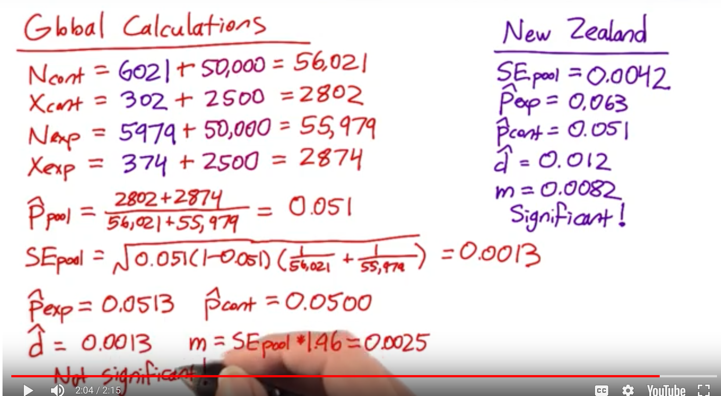 Global Calculations
N_cont = 6021 + 50,000 = 56,021
X_cont = 302 + 2500 = 2802
N_exp = 5979 + 50,000 = 55,979
X_exp = 374 + 2500 = 2874
p̂_pool = (2802+2874)/(56,021+55,979) = 0.051
SE_pool = √(0.051(1-0.051)(1/56,021 + 1/55,979)) = 0.0013
p̂_exp = 0.0513 p̂_cont = 0.0500
d̂ = 0.0013 m = SE_pool * 1.96 = 0.0025
Not significant!
New Zealand
SE_pool = 0.0042
p̂_exp = 0.063
p̂_cont = 0.051
d̂ = 0.012
m = 0.0082
Significant!
2:04 / 2:15
CC
YouTube